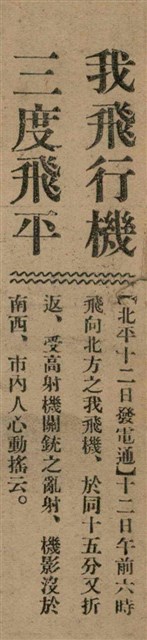 我飛行機
三度飛平
【北平十二日發電通】十二日午前六時
飛向北方之我飛機、於同十五分又折
返、受高射機關銃之亂射、機影沒於
南西、市內人心動搖云。